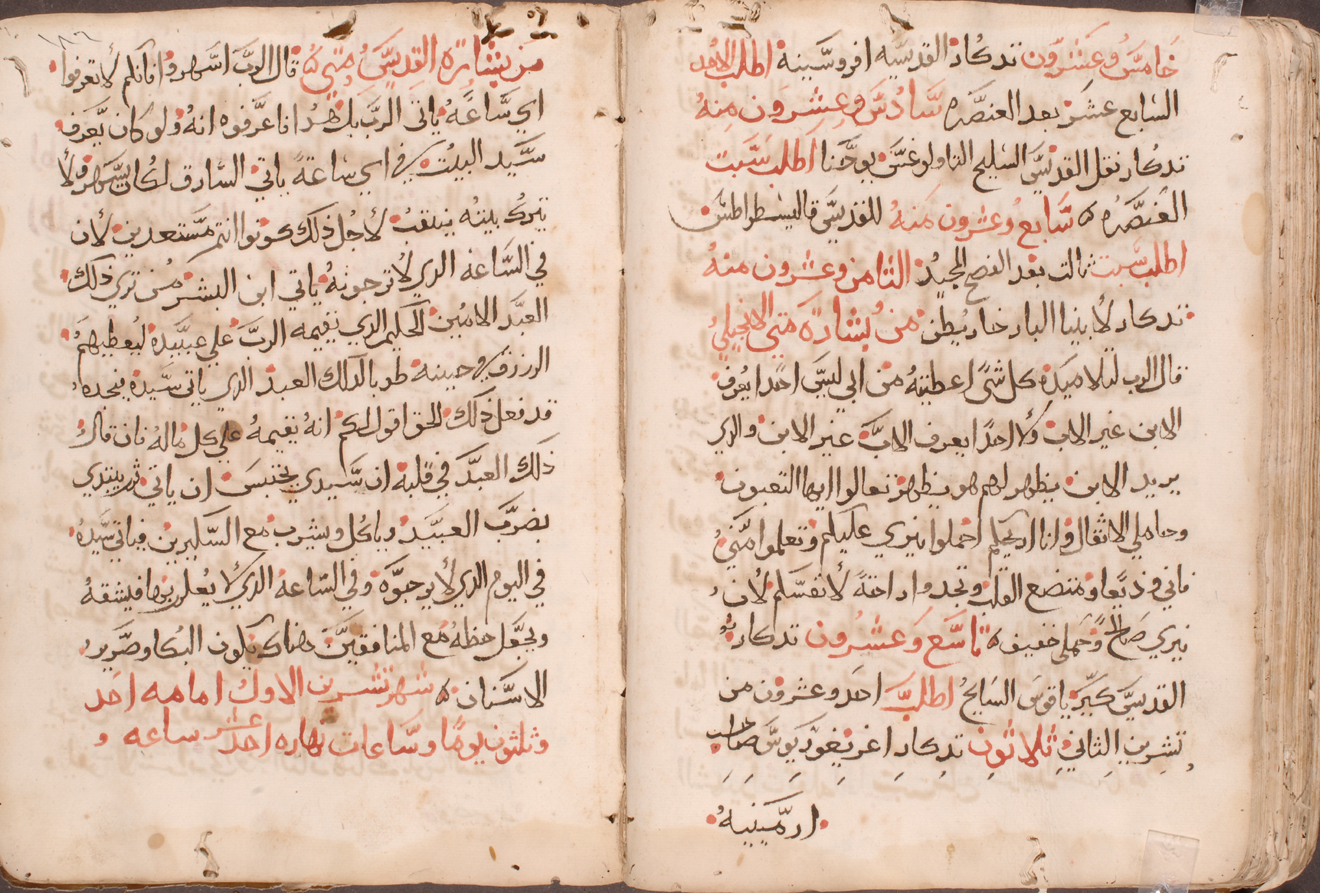 خامس وعشرون تدكار القديسه افروسينه اطلب الاحد
السابع عشر بعد العنصره سادس وعشرون منه
تدكار نقل القديس السليح التاولوغس يوحنا اطلب سبت
العنصره ه سابع وعشرون منه للقديس قاليسطراطس
اطلب سبت ثالت بعد الفصح المجيد الثامن وعشرون منه
تدكار لابينا البار خاريطن من بشارة متي الانجيلي
قال الرب لتلاميده كل شى اعطيته من ابي ليس احدا يعرف
الابن غير الاب ولا احدا يعرف الاب غير الابن والدي
يريد الابن يظهر لهم هو يظهر تعالوا اليا ايها التعبون
وحاملي الاثقال وانا اريحكم احملوا نيري عليكم وتعلموا مني
فاني وديعا ومتضع القلب وتجدوا راحة لانفسكم لان
نيري صالح وحملي خفيف ه تاسع وعشرون تدكار
القديس كيرياقوس السايح اطلب احد وعشرون من
تشرين الثاني ثلاثون تدكار اغريغوريوس صاحب
ارمينيه
١٨٦
من بشارة القديس متي قال الرب اسهروا فانكم لا تعرفوا
اي ساعه ياتي الربكم هدا فاعرفوه انه ولو كان يعرف
سيد البيت في اي ساعة ياتي السارق لكان يسهر ولا
يترك بيته ينقب لاجل دلك كونوا انتم مستعدين لان
في الساعه الدي لا ترجونه ياتي ابن البشر من تري دلك
العبد الامين الحكيم الدي يقيمه الرب علي عبيده ليعطيهم
الرزق في حينه طوبا لدلك العبد الدي ياتي سيده فيجده
قد فعل دلك الحق اقول لكم انه يقيمه علي كل ماله فان قال
دلك العبد في قلبه ان سيدي يحتبس ان ياتي ثم يبتدي
بضرب العبيد وياكل ويشرب مع السكيرين فياتي سيده
في اليوم الدي لا يرجوه وفي الساعه الدي لا يعلم بها فيشقه
ويجعل حظه مع المنافقين هناك يكون البكا وصرير
الاسنان ه شهر تشرين الاول امامه احد
وثلثون يوما وساعات نهاره احد عشر ساعه